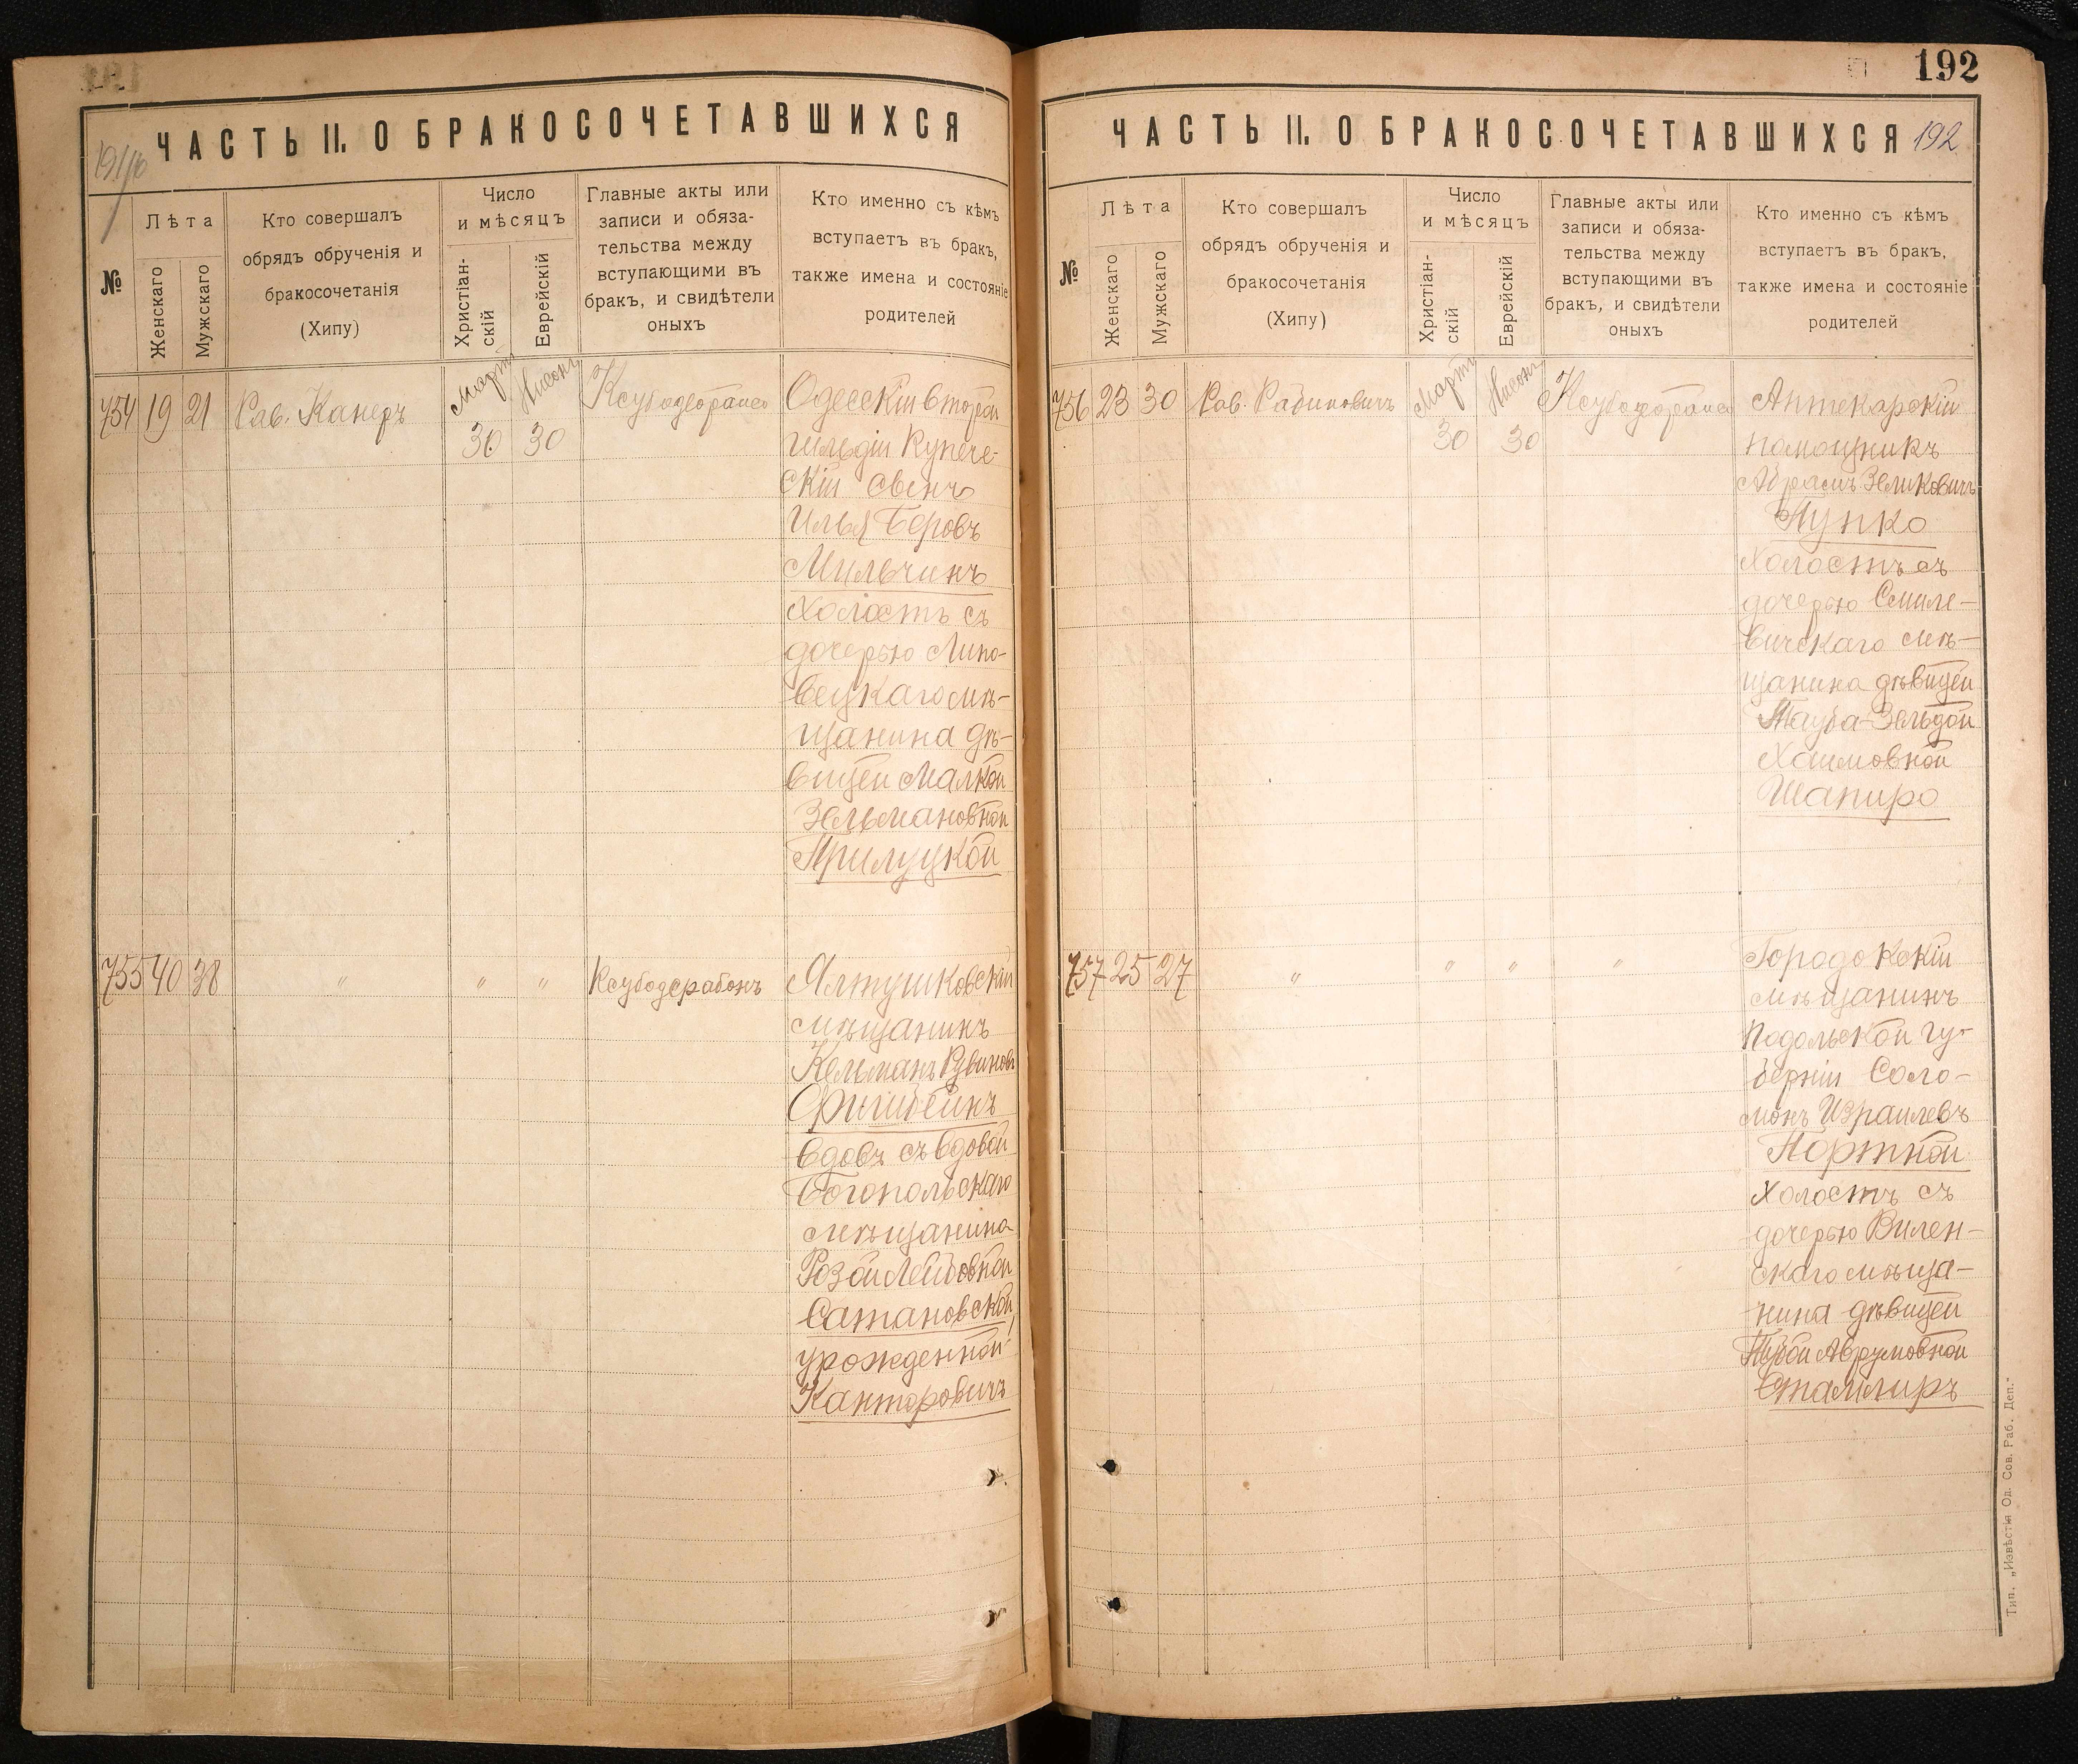 192
ЧАСТЬ II. О БРАКОСОЧЕТАВШИХСЯ
№
Лѣта
Женскаго
Мужскаго
Кто совершалъ
обрядъ обрученія и
бракосочетанія
(Хипу)
Число
и мѣсяцъ
Христіан-
скій
Еврейскій
Главные акты или
записи и обяза-
тельства между
вступающими въ
бракъ, и свидѣтели
оныхъ
Кто именно съ кѣмъ
вступаетъ въ бракъ,
также имена и состояніе
родителей
754 19 21 Рав. Канеръ
Мартъ 30
Нисонъ 30
Одесскій второй
гильдіи Купече-
скій сынъ
Илья Беровъ
Мильчинъ
Холостъ съ
дочерью Липо-
вецкаго мѣ-
щанина дѣ-
вицей Малкой
Зельмановной
Прилуцкой
755 40 38 " " " Ксубодерабонъ
Ялтушковскій
мѣщанинъ
Кельманъ Рувиновъ
Фишбейнъ
вдовъ съ вдовой
Богопольскаго
мѣщанина
Розой Лейбовной
Сатановской,
урожденной
Канторовичъ
ЧАСТЬ II. О БРАКОСОЧЕТАВШИХСЯ 192
№
Лѣта
Женскаго
Мужскаго
Кто совершалъ
обрядъ обрученія и
бракосочетанія
(Хипу)
Число
и мѣсяцъ
Христіан-
скій
Еврейскій
Главные акты или
записи и обяза-
тельства между
вступающими въ
бракъ, и свидѣтели
оныхъ
Кто именно съ кѣмъ
вступаетъ въ бракъ,
также имена и состояніе
родителей
756 23 30 Рав. Рабиновичъ
Мартъ 30
Нисонъ 30
Аптекарскій
помощникъ
Абрамъ Зеликовичъ
Пупко
Холостъ съ
дочерью Смиле-
вичскаго мѣ-
щанина дѣвицей
Тауба-Зельдой
Хаимовной
Шапиро
757 25 27 " " " "
Городокскій
мѣщанинъ
Подольской гу-
берніи Соло-
монъ Израилевъ
Портной
Холостъ съ
дочерью Вилен-
скаго мѣща-
нина дѣвицей
Аврумовной
Тип. „Извѣстія Од. Сов. Раб. Деп."